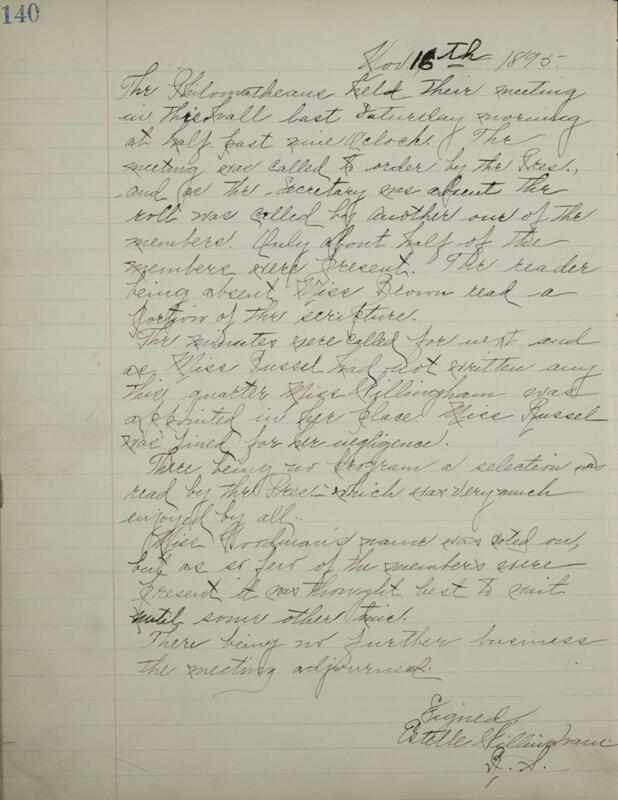 140
Nov. 16th 1895.
The Philomatheans held their meeting
in their hall last Saturday morning
at half past nine O'clock. The
meeting was called to order by the Pres.,
and as the Secretary was absent the
roll was called by another one of the
members. Only about half of the
members were present. The reader
being absent Miss Brown read a
portion of the scripture.
The minutes were called for next and
as Miss Russel had not written any
this quarter Miss Killingham was
appointed in her place. Miss Russel
was fined for her negligence.
There being no program a selection was
read by the Pres. which was very much
enjoyed by all.
Miss Woodman's name was voted on,
but as so few of the members were
present it was thought best to wait
until some other time.
There being no further business
the meeting adjourned.
Signed,
Estelle Killingham.
R. S.